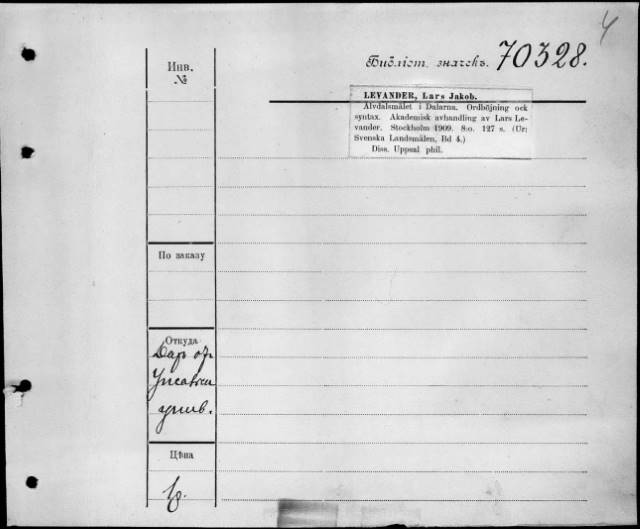 4
Библіот. значекъ. 70328.
Инв.
№
LEVANDER, Lars Jakob.
Älvdalsmålet i Dalarna. Ordböjning ock
syntax. Akademisk avhandling av Lars Le-
vander. Stockholm 1909. 8:o. 127 s. (Ur:
Svenska Landsmålen, Bd 4.)
Diss. Uppsal phil.
По заказу
Откуда
Даръ от
унив.
Цѣна